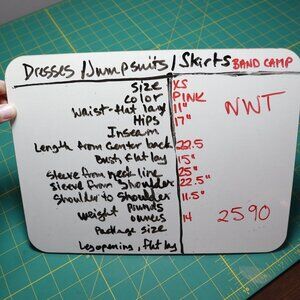 Dresses / Jumpsuits / Skirts BAND CAMP
Size XS
Color PINK
Waist - flat lay 11"
Hips 17"
Inseam
Length from Center back 22.5
Bust, flat lay 15"
Sleeve from neck line 25"
Sleeve from Shoulder 22.5"
Shoulder to Shoulder 11.5"
Weight Pounds
ounces 14
Package size
Leg opening, flat lay
NWT
2590